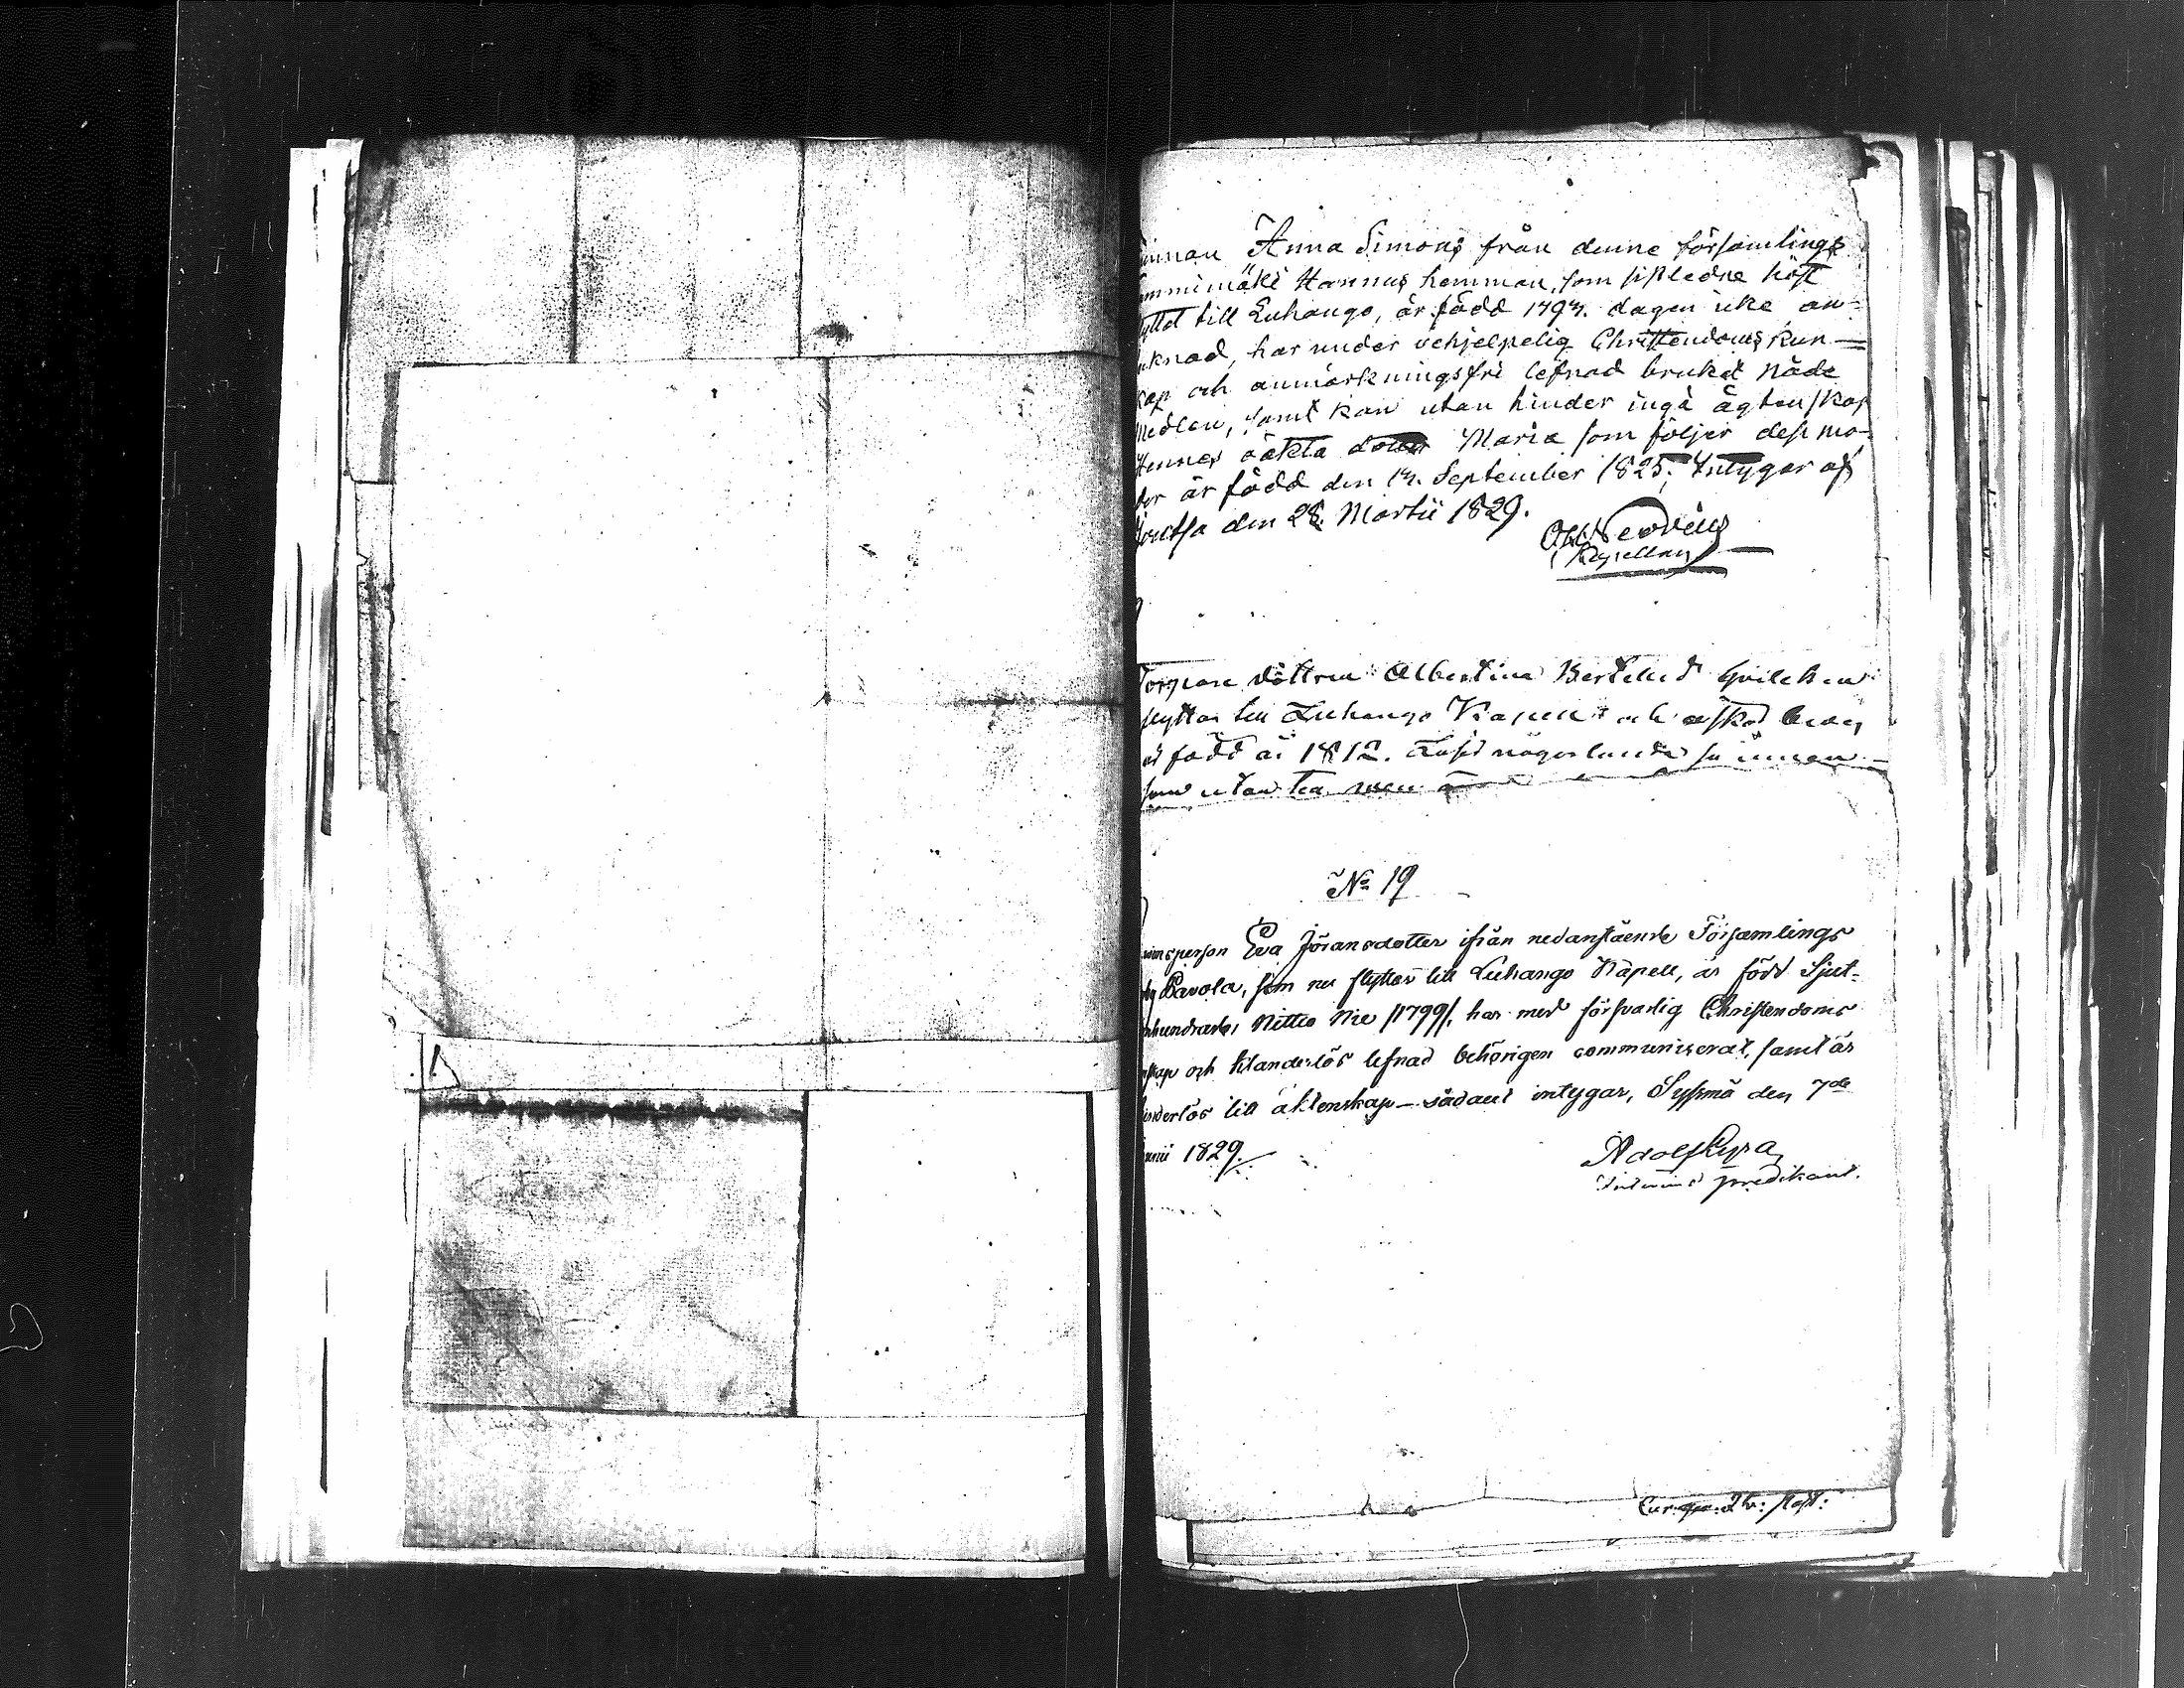 Anna Simons från denne församlings
mimäki Hannus hemman, som sistledne höst
till Luhango, är född 1794. dagen icke an-
knad, har under vehjelpelig Christendoms kun-
kap och anmärkningsfri lefnad brukat Nåde
Medlen, samt kan utan hinder ingå ägtenskap
Hennes oäkta dotter Maria som följer dess mo-
der är född den 14. September 1825; Intygar af
Joutsa den 28. Martii 1829.
Kapellan
Torpare dottren Albertina Bertelsd. hvilken
flyttar till Luhango Kapell och äskat bevis
är född år 1812. Läser någorlunda
som utan
No 19
person Eva Jöransdotter ifrån nedanstående Församlings
by Pavola, som nu flyttar till Luhango Kapell, är född Sjut-
hundrade, Nittio Nie /1799/, har med försvarlig Christendoms
skap och klanderlös lefnad behörigen communicerat, samt är
inderlös till äktenskap – sådant intygar, Sysmä den 7de
unii 1829.
predikant.